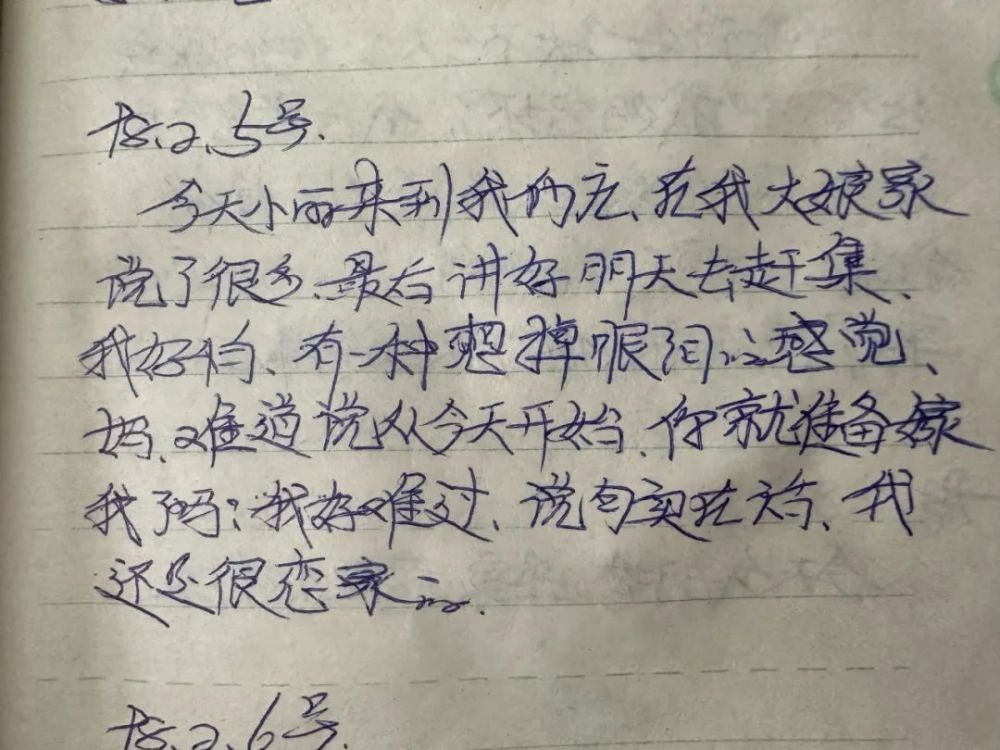 78.2.5号.
今天小丽来到我们庄、在我大娘家
说了很多、最后讲好明天去赶集、
我好怕、有一种想掉眼泪的感觉、
妈、难道说从今天开始、你就准备嫁
我了吗:我好难过、说句实在话、我
还是很恋家的.
78.2.6号.